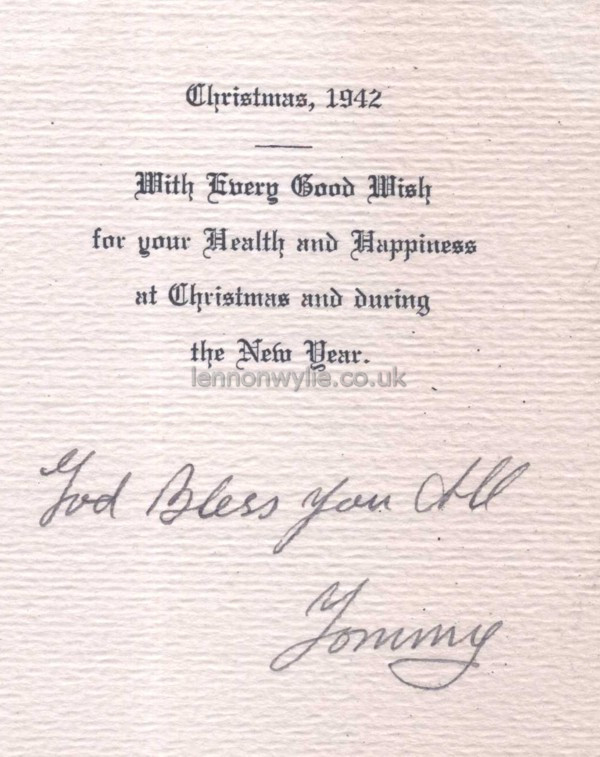 Christmas, 1942
With Every Good Wish
for your Health and Happiness
at Christmas and during
the New Year.
lennonwylie.co.uk
God Bless You All
Tommy